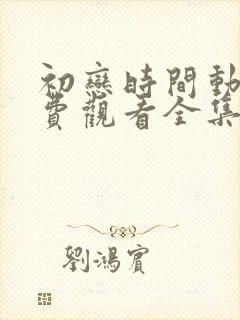 初戀時間動
費觀看全集
劉鴻賓